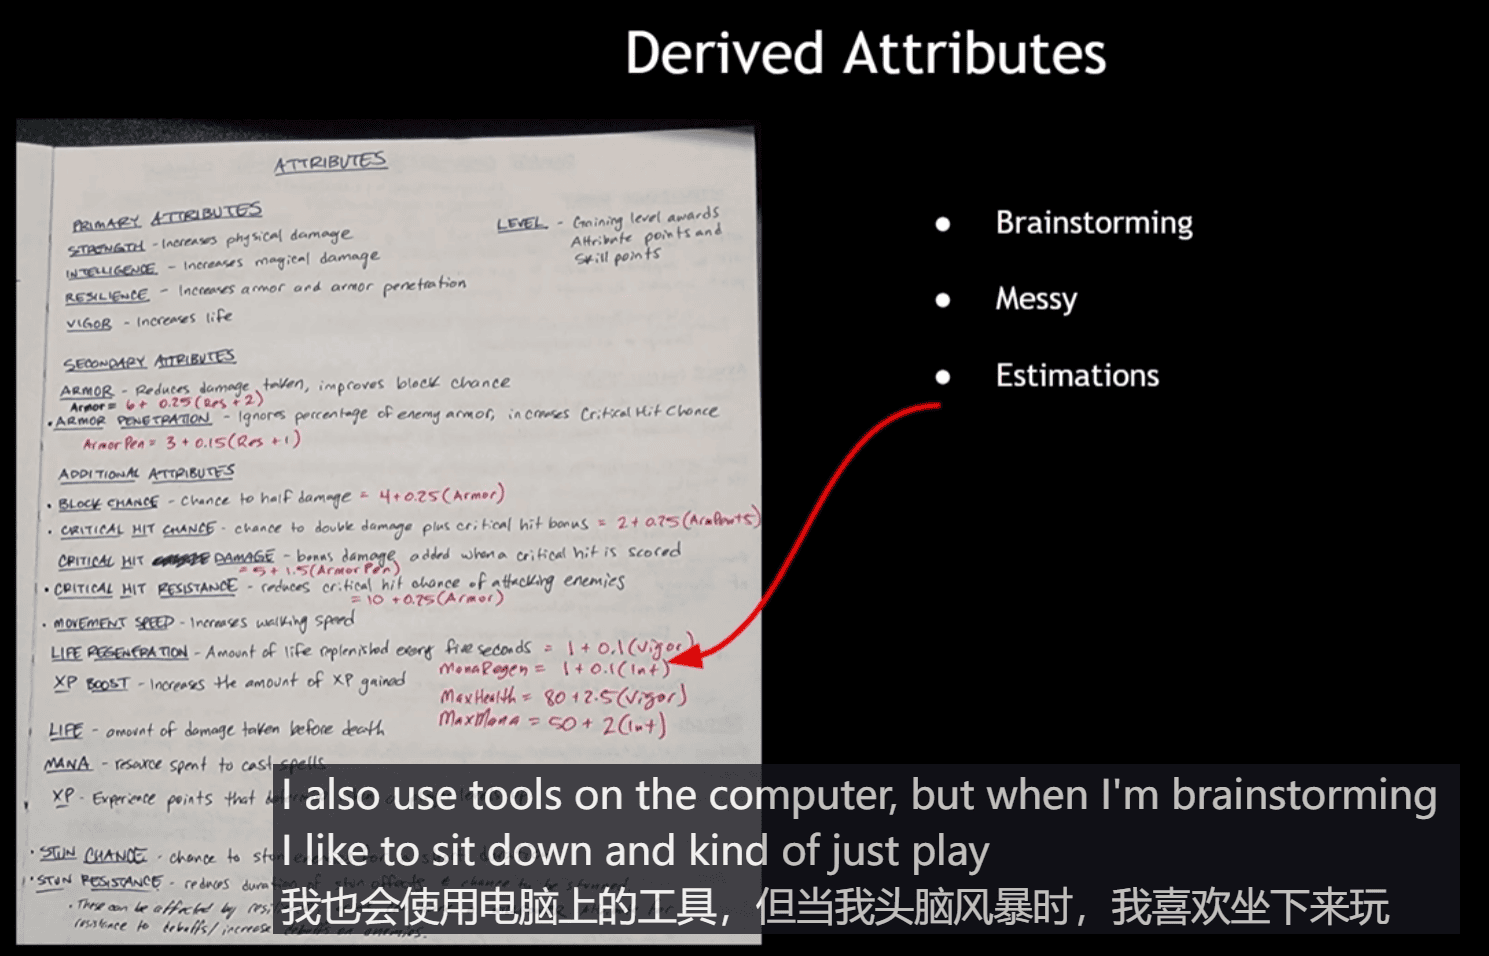 Derived Attributes
ATTRIBUTES
PRIMARY ATTRIBUTES
STRENGTH - Increases physical damage
INTELLIGENCE - Increases magical damage
RESILIENCE - Increases armor and armor penetration
VIGOR - Increases life
LEVEL - Gaining level awards
Attribute points and
Skill points
SECONDARY ATTRIBUTES
ARMOR - Reduces damage taken, improves block chance
Armor = 6 + 0.25 (Res + 2)
• ARMOR PENETRATION - Ignores percentage of enemy armor, increases Critical Hit Chance
ArmorPen = 3 + 0.15 (Res + 1)
ADDITIONAL ATTRIBUTES
• BLOCK CHANCE - chance to half damage = 4 + 0.25 (Armor)
• CRITICAL HIT CHANCE - chance to double damage plus critical hit bonus = 2 + 0.75
CRITICAL HIT DAMAGE - bonus damage added when a critical hit is scored
= 5 + 1.5 (ArmorPen)
• CRITICAL HIT RESISTANCE - reduces critical hit chance of attacking enemies
= 10 + 0.25 (Armor)
• MOVEMENT SPEED - Increases walking speed
LIFE REGENERATION - Amount of life replenished every five seconds = 1 + 0.1 (Vigor)
ManaRegen = 1 + 0.1 (Int)
XP BOOST - Increases the amount of XP gained
MaxHealth = 80 + 2.5 (Vigor)
MaxMana = 50 + 2 (Int)
LIFE - amount of damage taken before death
MANA - resource spent to cast spells
XP - Experience points that
• STUN CHANCE - chance to stun
• STUN RESISTANCE - reduces duration of stun effects & chance to be stunned
• These can be affected by
resistance to debuffs / increase debuffs on enemies.
• Brainstorming
• Messy
• Estimations
I also use tools on the computer, but when I'm brainstorming
I like to sit down and kind of just play
我也会使用电脑上的工具，但当我头脑风暴时，我喜欢坐下来玩